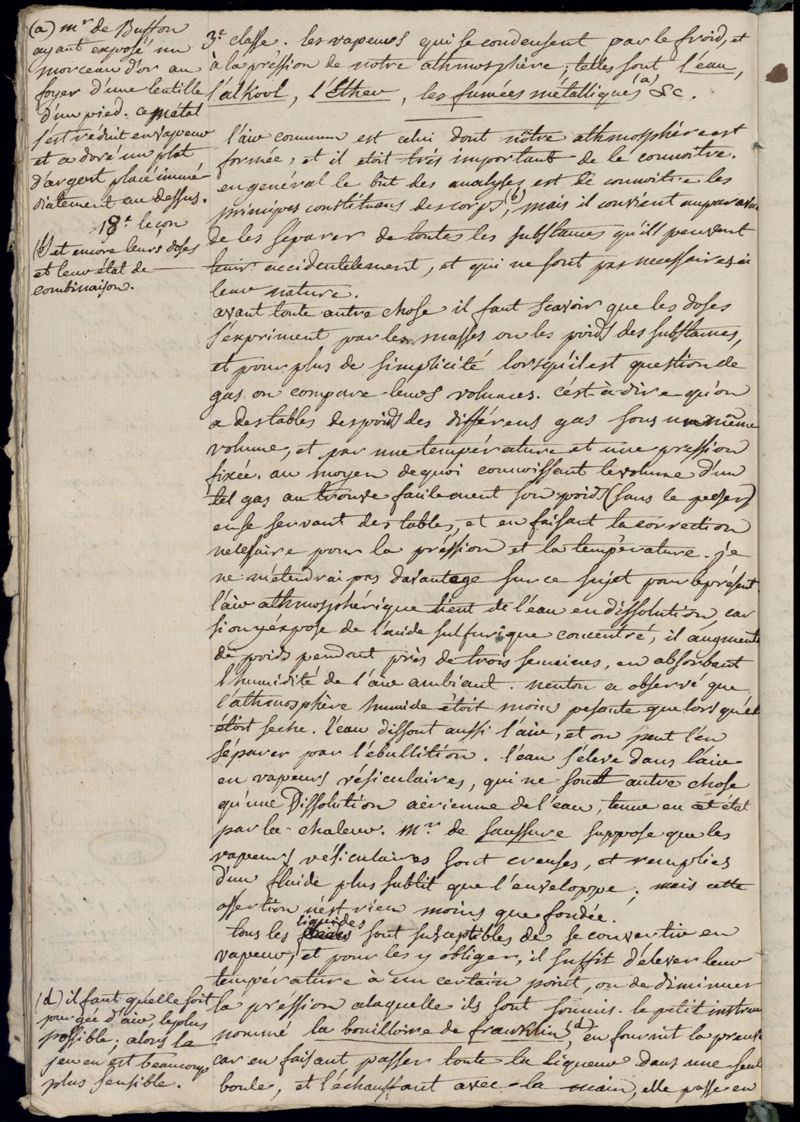 (a) mr. de Buffon
ayant exposé un
morceau d'or au
foyer d'une lentille
d'un pied. ce métal
s'est réduit en vapeur
et a doré un plat
d'argent placé immé
diatement au dessus.
18e. leçon
et encore leurs doses
et leur état de
combinaison.
3e. classe. les vapeurs qui se condensent par le froid, et
à la pression de notre athmosphère; telles sont l'eau,
l'alkool, l'Ether, les fumées métalliques (a) &c.
l'air commun est celui dont notre athmosphère est
formée, et il étoit très important de le connoitre.
en général le but des analyses est de connoitre les
principes constituans des corps, (b) mais il convient auparavan
de les séparer de toutes les substances qu'ils peuvent
tenir accidentelement, et qui ne sont pas necessaires à
leur nature.
avant toute autre chose il faut scavoir que les doses
s'expriment par les masses ou les poids des substances,
et pour plus de simplicité lorsqu'il est question de
gas on compare leurs volumes. c'est-à-dire qu'on
a des tables des poids des différens gas sous un même
volume, et par une température et une pression
fixée. au moyen de quoi connoissant le volume d'un
tel gas on trouve facilement son poids (sans le peser)
en se servant des tables, et en faisant la correction
necessaire pour la préssion et la température. je
ne m'étendrai pas davantage sur ce sujet pour le présent.
l'air athmosphérique tient de l'eau en dissolution, car
si on y expose de l'acide sulfurique concentré, il augmente
de poids pendant près de trois semaines, en absorbant
l'humidité de l'air ambiant. neuton a observé que
l'athmosphère humide étoit moin pesante que lorsqu'el
étoit seche. l'eau dissout aussi l'air, et on peut l'en
séparer par l'ébullition. l'eau s'éleve dans l'air
en vapeurs vésiculaires, qui ne sont autre chose
qu'une Dissolution aérienne de l'eau, tenue en cet état
par la chaleur. mr. de Saussure suppose que les
vapeurs vésiculaires sont creuses, et remplies
d'un fluide plus subtil que l'enveloppe; mais cette
assertion n'est rien moins que fondée.
tous les liquides sont susceptibles de se convertir en
vapeur, et pour les y obliger, il suffit d'élever leur
température à un certain point, ou de diminuer
la pression alaquelle ils sont soumis. le petit instrum
nommé la bouilloire de francklin, (d) en fournit la preuve
car en faisant passer toute la liqueur dans une seul
boule, et l'échauffant avec la main, elle passe en
(d) il faut qu'elle soit
purgée d'air le plus
possible; alors la
jeu en est beaucoup
plus sensible.